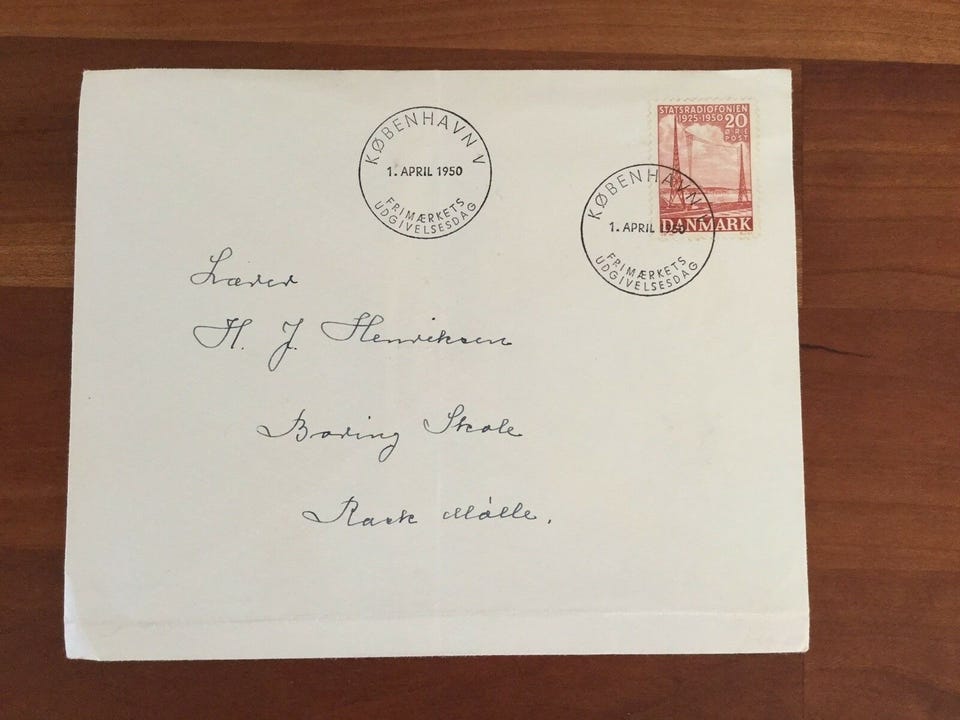 KØBENHAVN V
1. APRIL 1950
FRIMÆRKETS
UDGIVELSESDAG
STATSRADIOFONIEN
1925-1950
20
ØRE
POST
DANMARK
KØBENHAVN V
1. APRIL 1950
FRIMÆRKETS
UDGIVELSESDAG
Lærer
H. J. Henriksen
Boring Skole
Rask Mølle.